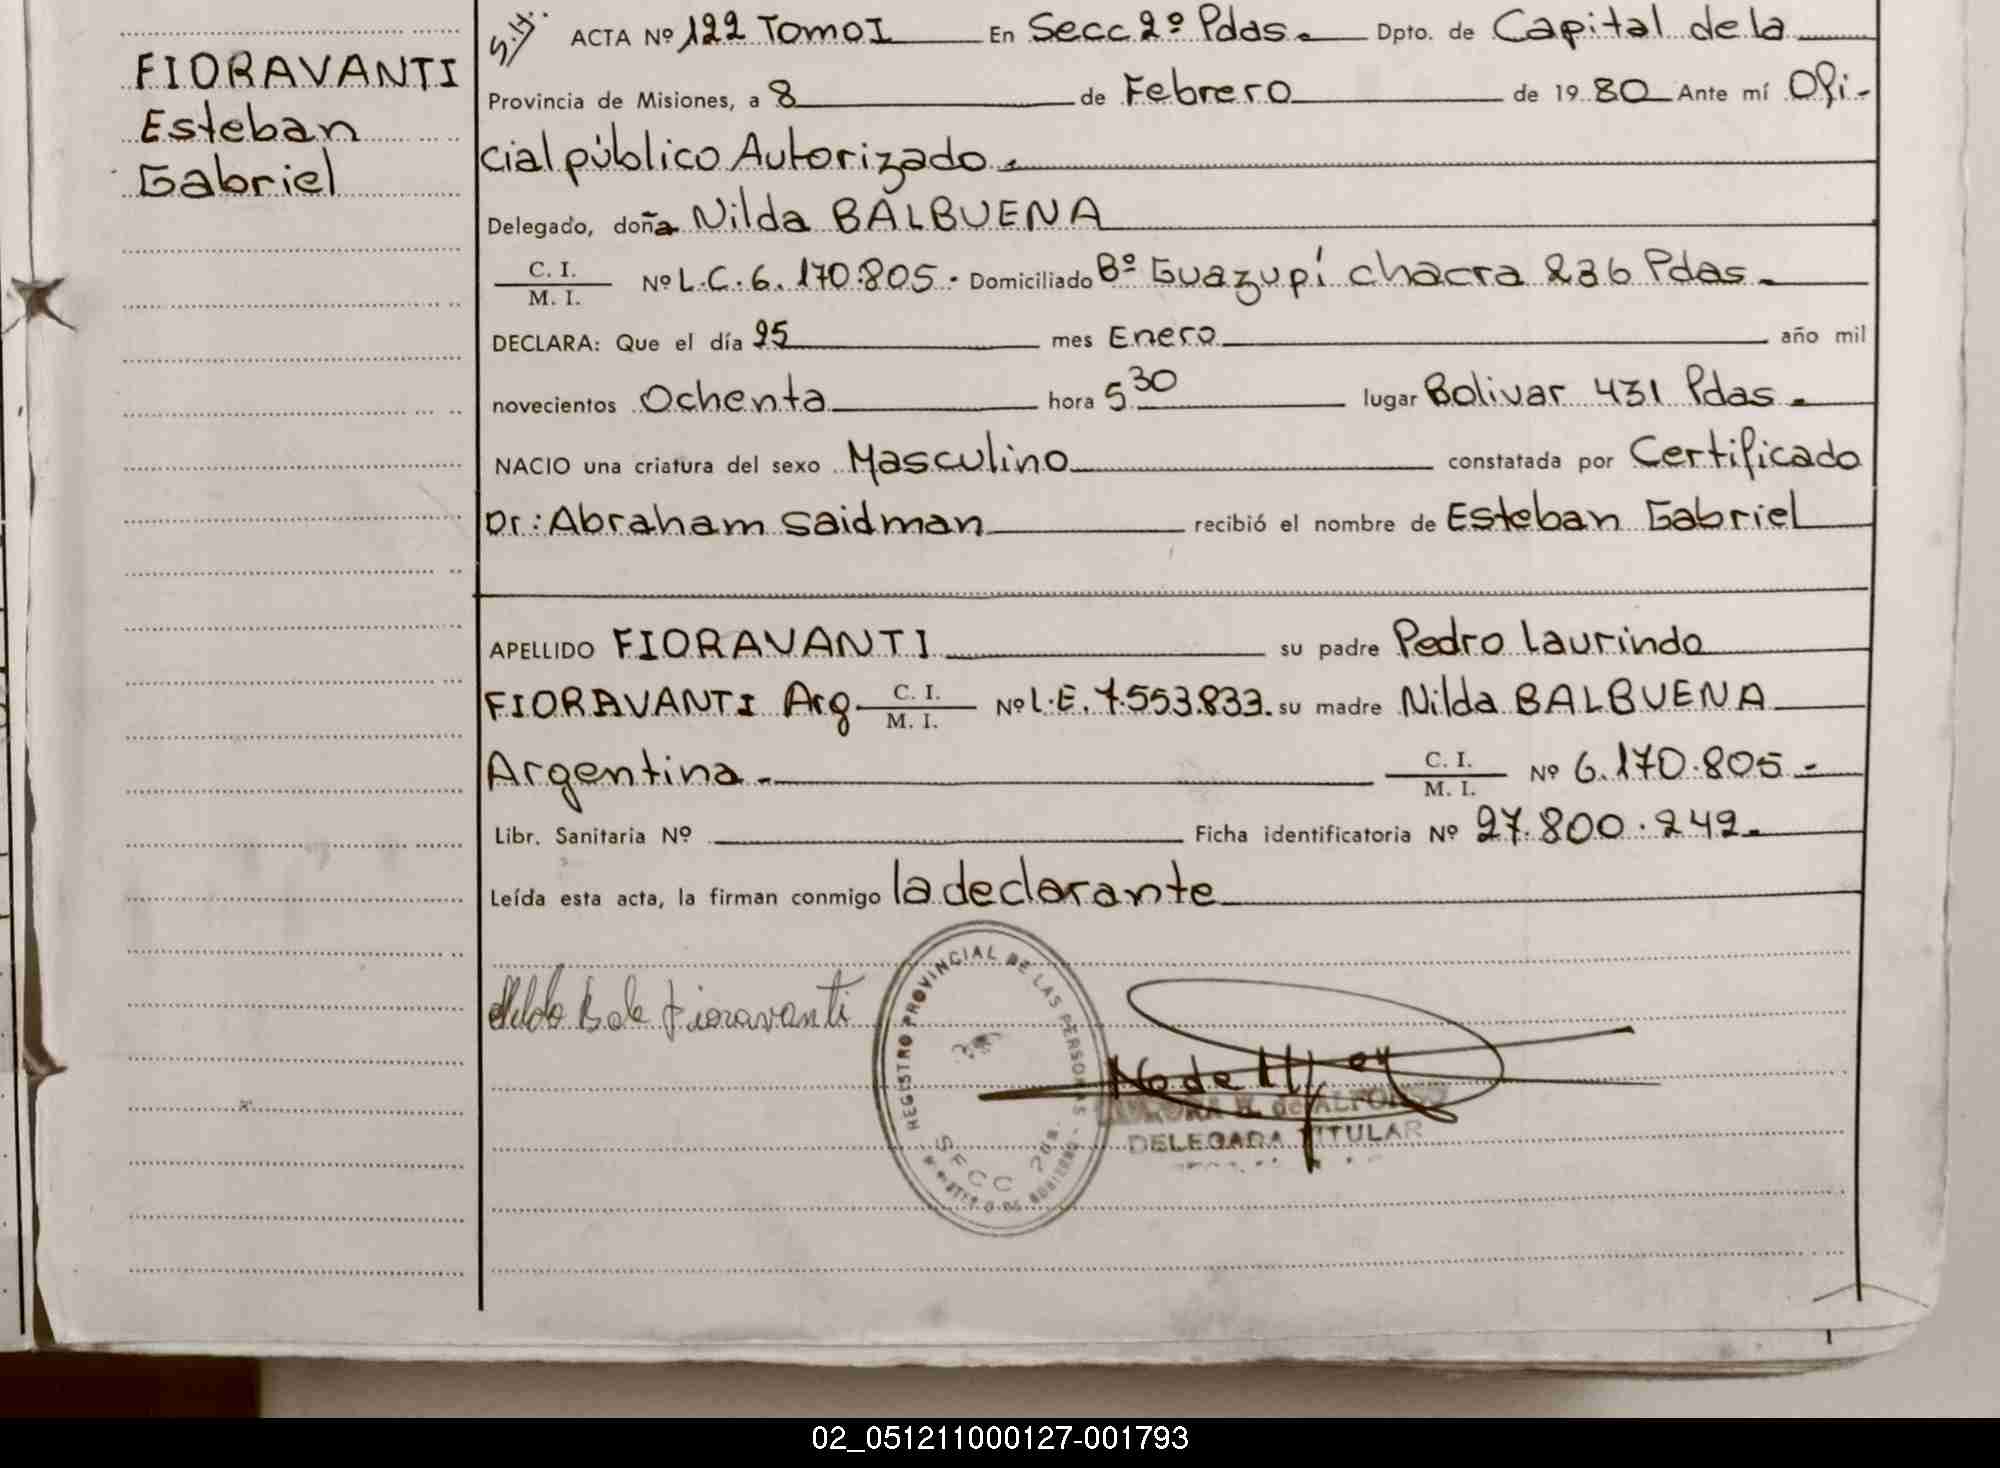 FIORAVANTI
Esteban
Gabriel
S.M. ACTA Nº 122 Tomo I En Secc 2º Pdas. Dpto. de Capital de la
Provincia de Misiones, a 8 de Febrero de 19 80 Ante mí Ofi-
cial público Autorizado.
Delegado, doña Nilda BALBUENA
C. I.
M. I. Nº L.C. 6.170.805 - Domiciliado Bº Guazupí chacra 236 Pdas.
DECLARA: Que el día 25 mes Enero año mil
novecientos Ochenta hora 5 30 lugar Bolivar 431 Pdas.
NACIO una criatura del sexo Masculino constatada por Certificado
Dr.: Abraham Saidman recibió el nombre de Esteban Gabriel
APELLIDO FIORAVANTI su padre Pedro Laurindo
FIORAVANTI Arg C. I.
M. I. Nº L.E. 7.553.833. su madre Nilda BALBUENA
Argentina. C. I.
M. I. Nº 6.170.805 -
Libr. Sanitaria Nº Ficha identificatoria Nº 27.800.242.
Leída esta acta, la firman conmigo la declarante
Nilda B de Fioravanti
REGISTRO PROVINCIAL DE LAS PERSONAS
SECC 2da.
MINISTERIO DE GOBIERNO
N. de ALFONZO
DELEGADA TITULAR
02_051211000127-001793